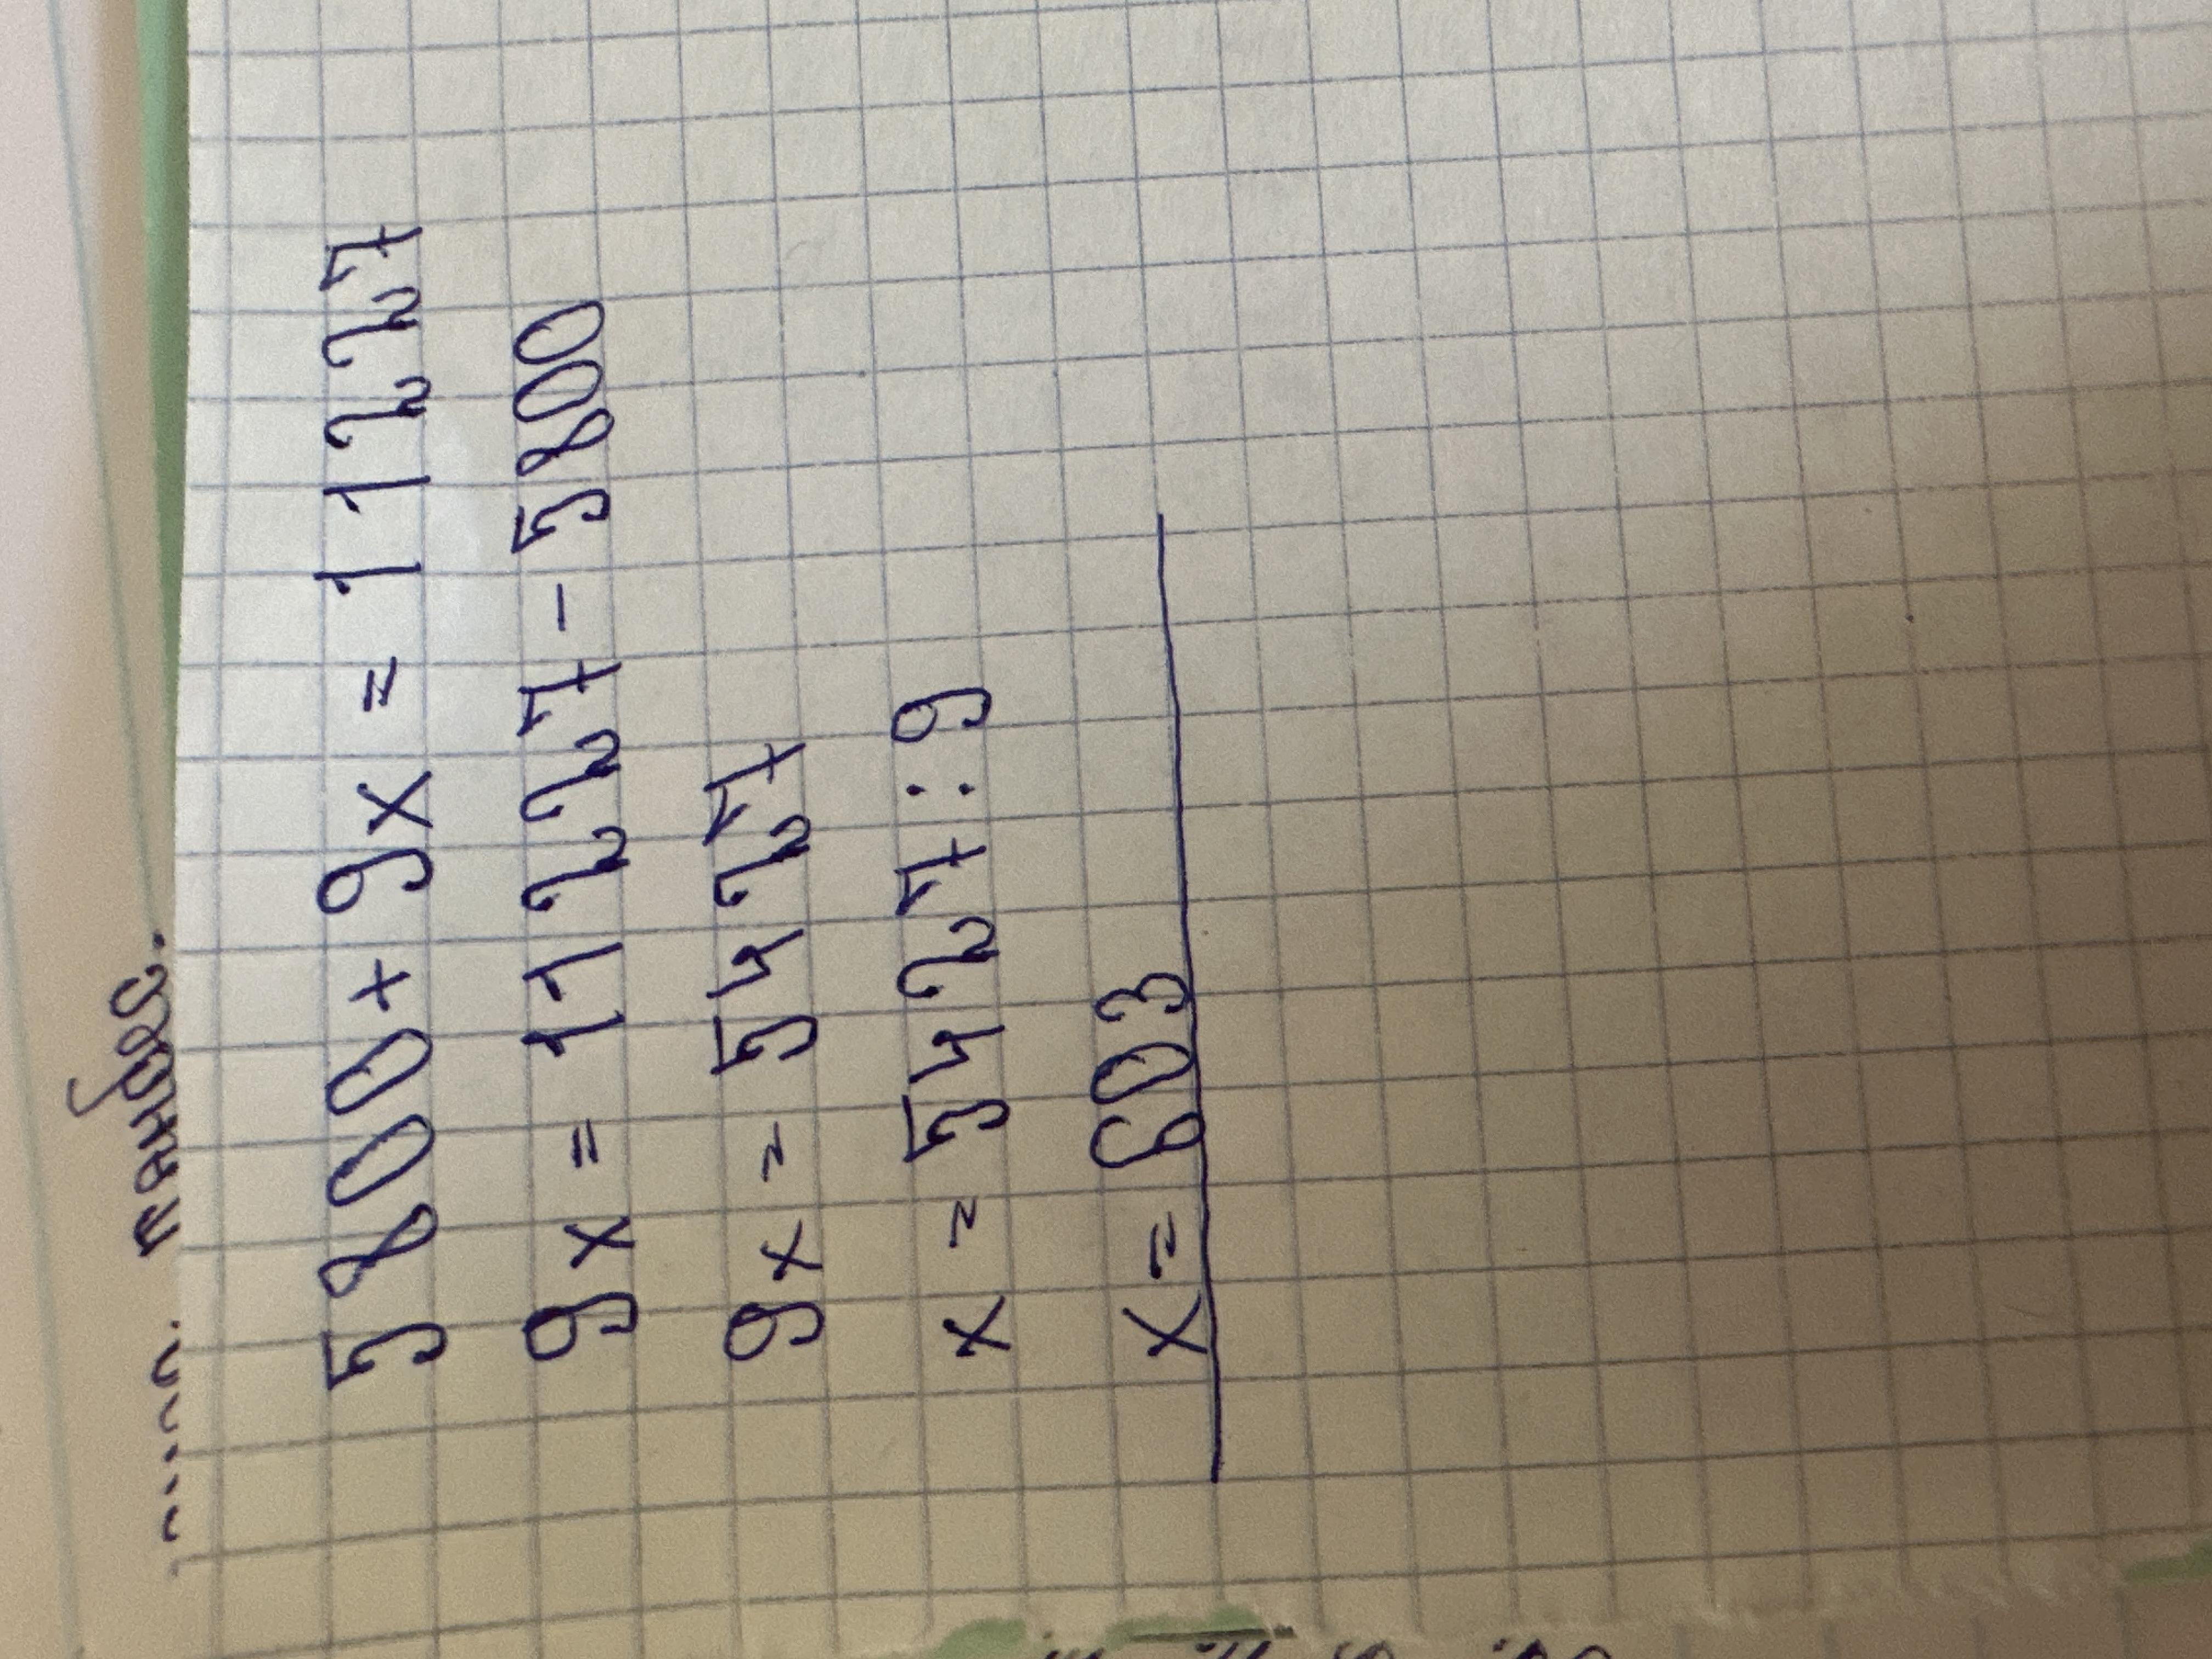 5800+9x=11227
9x=11227-5800
9x=5427
x=5427:9
x=603